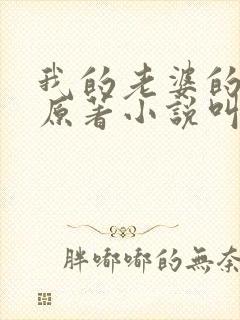 我的老婆的
原著小說叫
胖嘟嘟的無奈